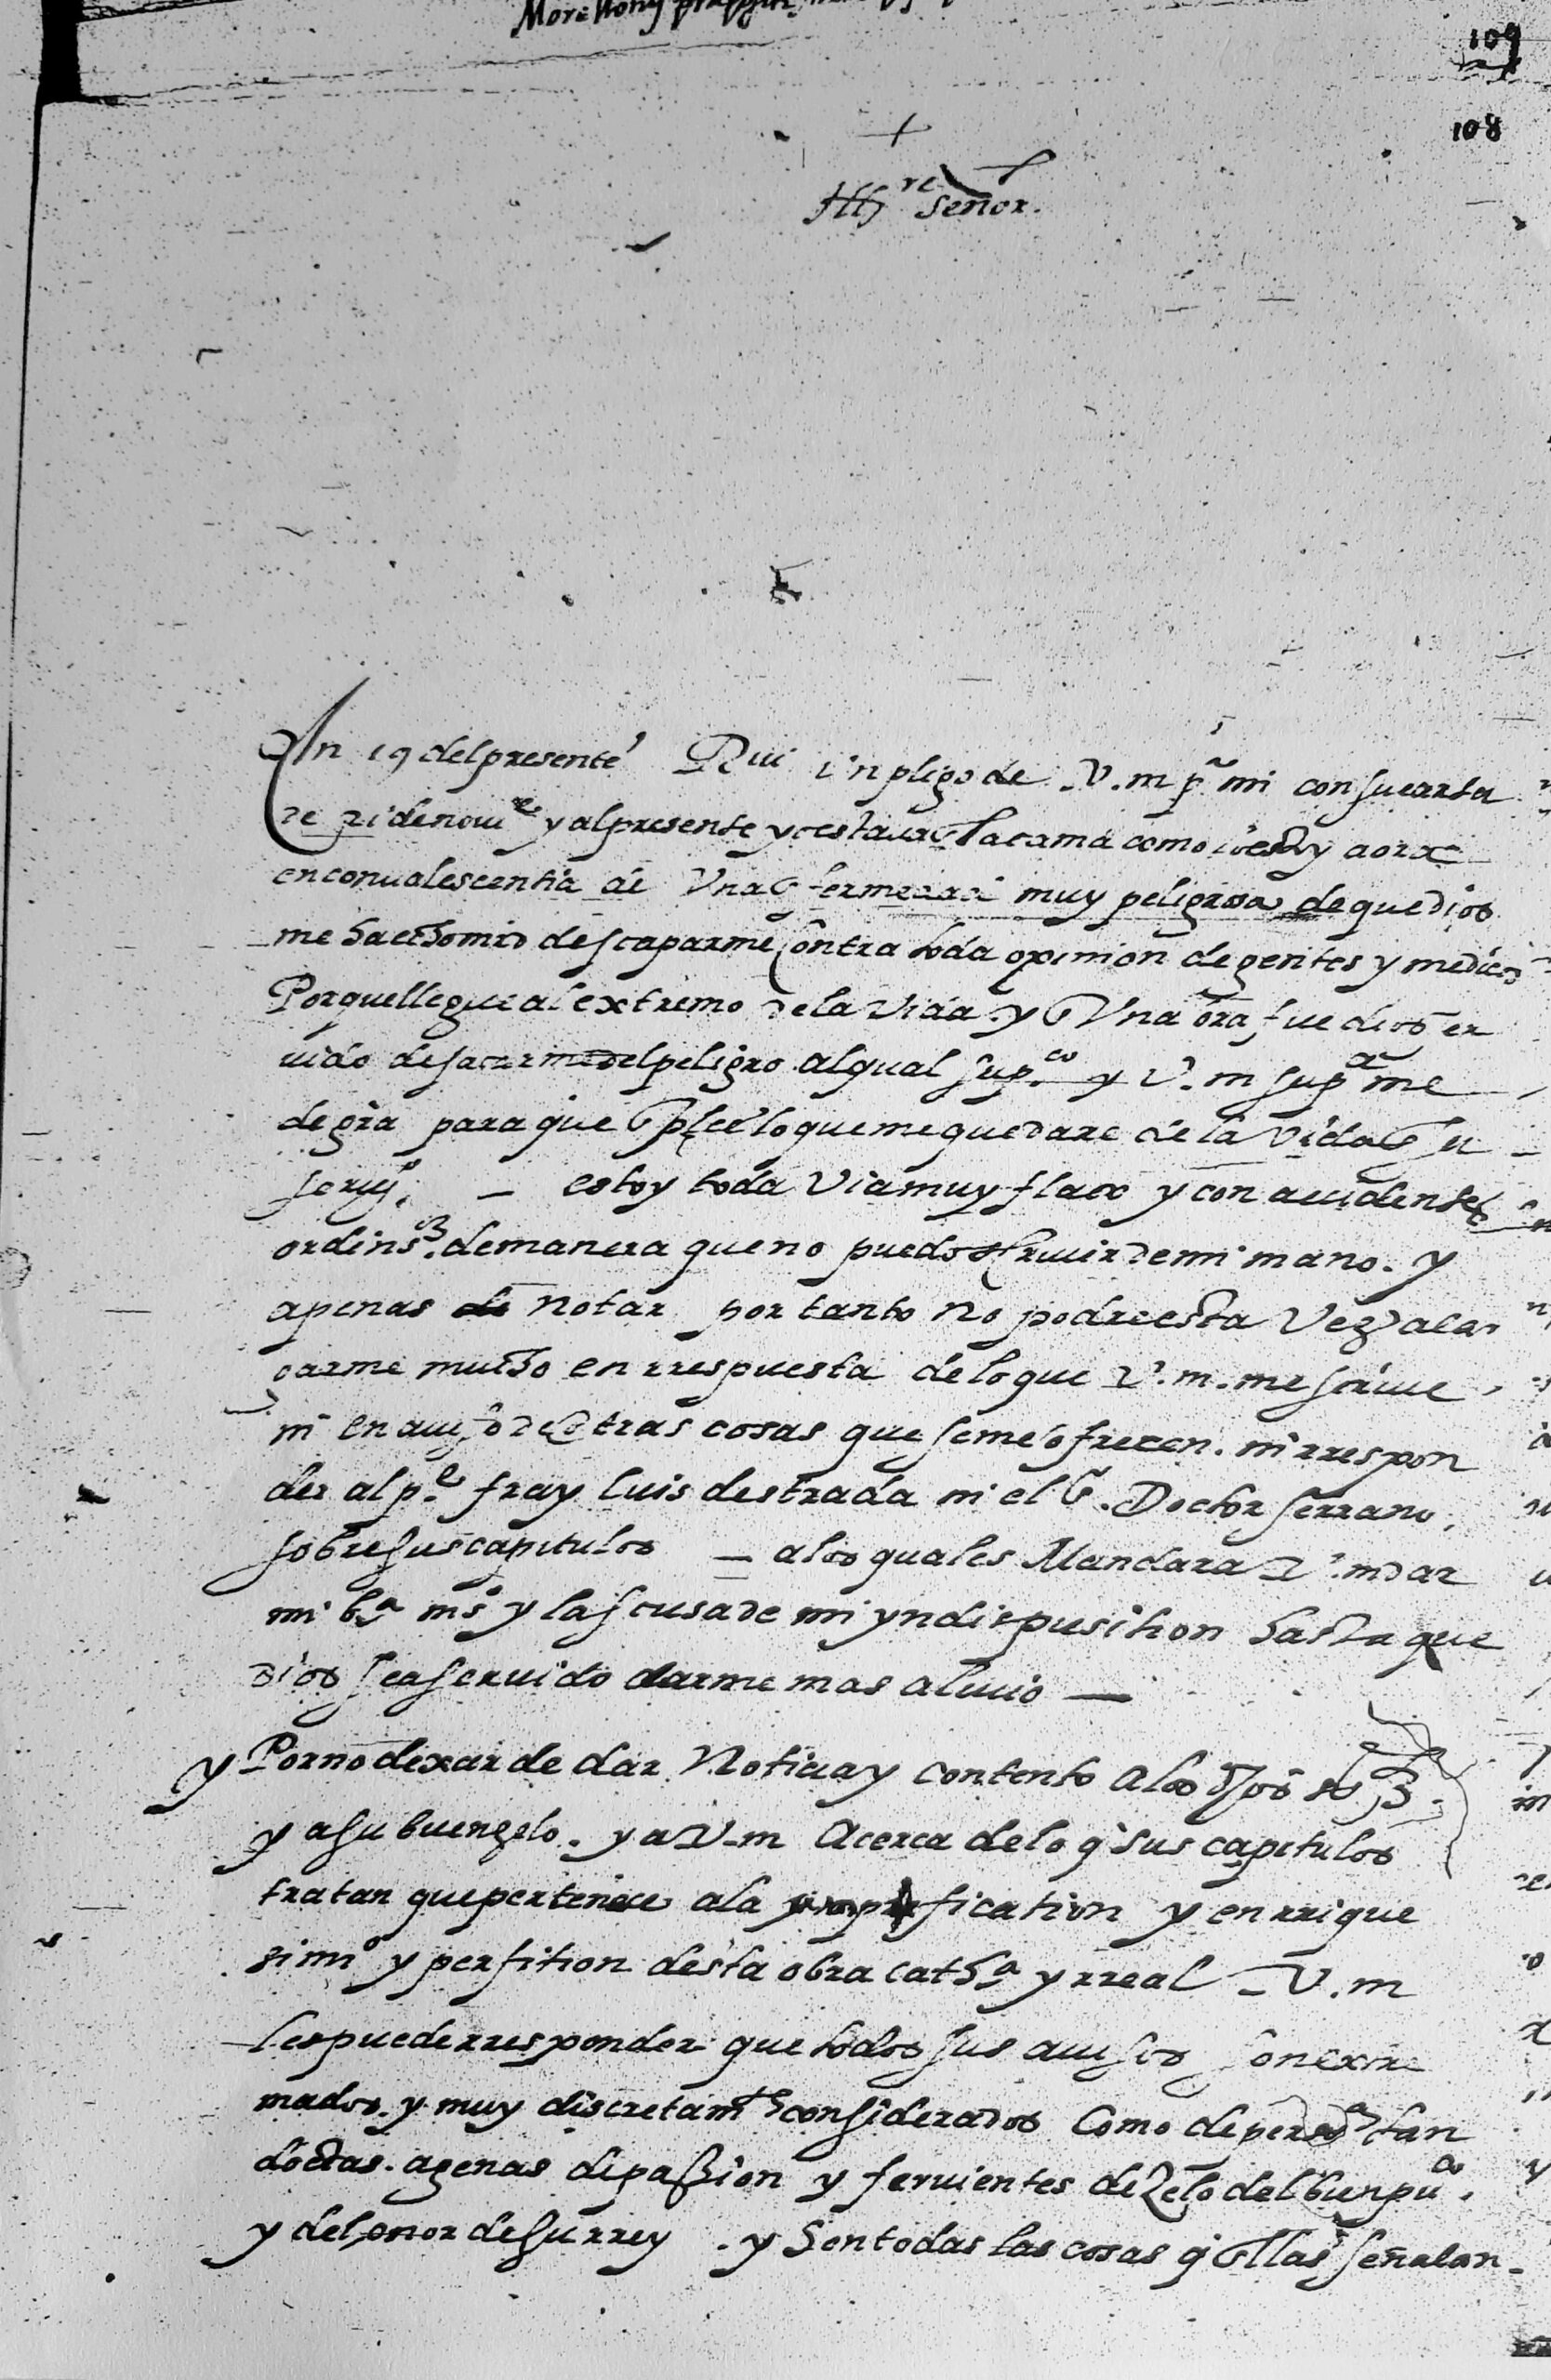 109
108
+
Illre Señor.
En 19 del presente Rui un pligo de .V.m pa mi con su carta
de 21 de noue y al presente yo estaua en la cama como lo estoy aora
en conualescentia de Una enfermedad muy peligrosa de que dios
me ha echo mrd descaparme contra toda opinion de gentes y medicos
Porque llegue al extremo de la vida y en Una ora fue dios ser
uido de sacarme del peligro al qual supco y V.m supa me
de gra para que enplee lo que me quedare de la vida en su
seruio. — estoy toda via muy flaco y con accidentes
ordins. de manera que no puedo escreuir de mi mano. y
apenas notar por tanto no podre esta vez alar
garme mucho en rrespuesta de lo que V.m. me scriue,
ni en auiso de otras cosas que se me ofrecen. ni rrespon
der al pe. fray luis destrada ni el S. Doctor serrano,
sobre sus capitulos — a los quales Mandara V.m dar
mi bsa ms y la scusa de mi yndisposition hasta que
dios sea seruido darme mas aliuio —
y Por no dexar de dar Noticia y contento a los dhos ss.
y a su buen zelo. y a V.m Acerca de lo q sus capitulos
tratan que pertenece a la fication y enrrique
zimio y perfition desta obra catha y rreal — V.m
les puede rresponder que todos sus auisos son extre
mados. y muy discretamte considerados Como de personas tan
doctas. agenas de passion y feruientes de zelo del bien puco.
y del onor de su rrey . y son todas las cosas q en ellas señalan